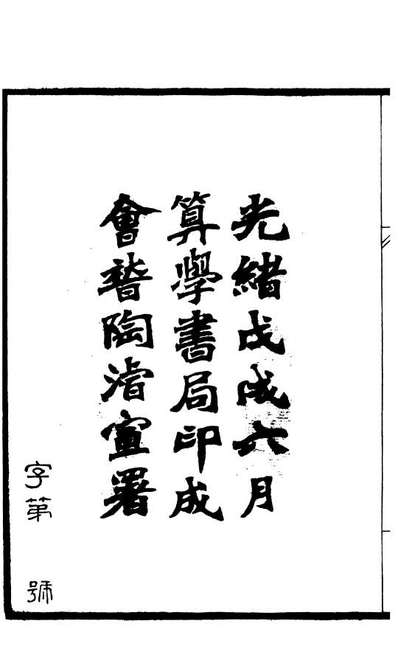 光緒戊戌六月
算學書局印成
會稽陶濬宣署
字第 號